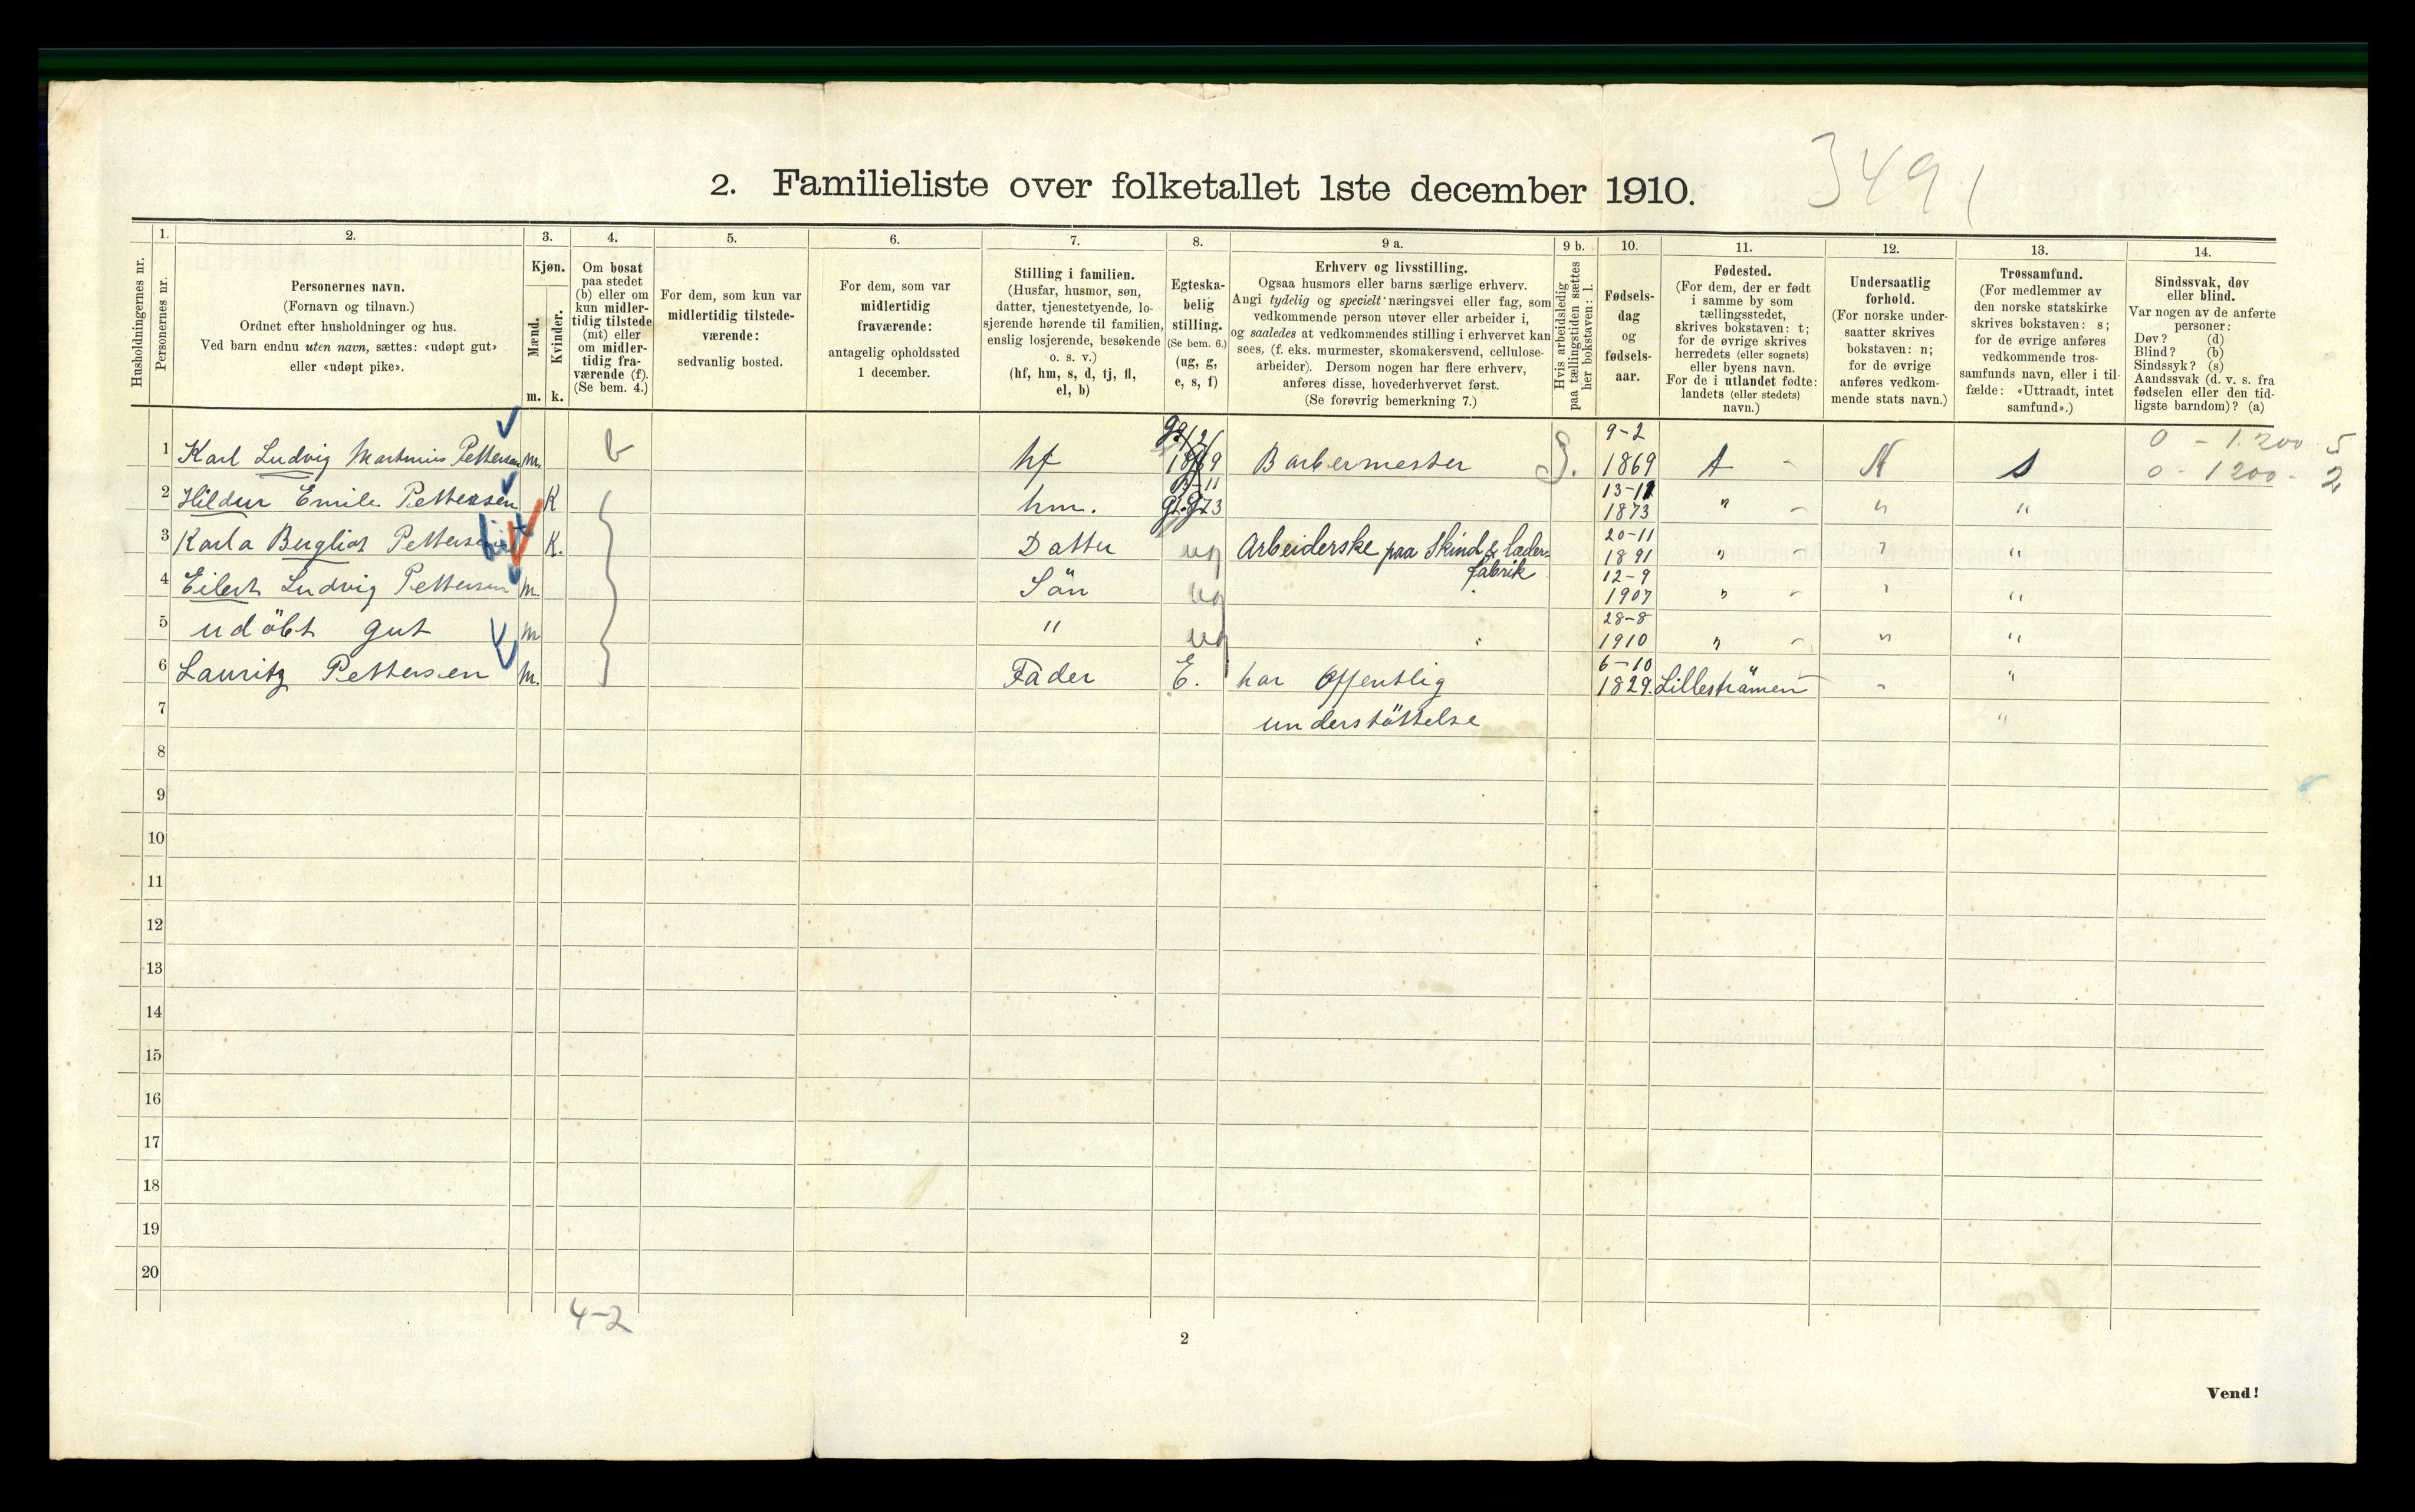 3491
2. Familieliste over folketallet 1ste december 1910.
1. 2. 3. 4. 5. 6. 7. 8. 9 a. 9 b. 10. 11. 12. 13. 14.
Husholdningernes nr.
Personernes nr.
Personernes navn.
(Fornavn og tilnavn.)
Ordnet efter husholdninger og hus.
Ved barn endnu uten navn, sættes: «udøpt gut»
eller «udøpt pike».
Kjøn.
Mænd.
Kvinder.
m. k.
Om bosat
paa stedet
(b) eller om
kun midler-
tidig tilstede
(mt) eller
om midler-
tidig fra-
værende (f).
(Se bem. 4.)
For dem, som kun var
midlertidig tilstede-
værende:
sedvanlig bosted.
For dem, som var
midlertidig
fraværende:
antagelig opholdssted
1 december.
Stilling i familien.
(Husfar, husmor, søn,
datter, tjenestetyende, lo-
sjerende hørende til familien,
enslig losjerende, besøkende
o. s. v.)
(hf, hm, s, d, tj, fl,
el, b)
Egteska-
belig
stilling.
(Se bem. 6.)
(ug, g,
e, s, f)
Erhverv og livsstilling.
Ogsaa husmors eller barns særlige erhverv.
Angi tydelig og specielt næringsvei eller fag, som
vedkommende person utøver eller arbeider i,
og saaledes at vedkommendes stilling i erhvervet kan
sees, (f. eks. murmester, skomakersvend, cellulose-
arbeider). Dersom nogen har flere erhverv,
anføres disse, hovederhvervet først.
(Se forøvrig bemerkning 7.)
Hvis arbeidsledig
paa tællingstiden sættes
her bokstaven: l.
Fødsels-
dag
og
fødsels-
aar.
Fødested.
(For dem, der er født
i samme by som
tællingsstedet,
skrives bokstaven: t;
for de øvrige skrives
herredets (eller sognets)
eller byens navn.
For de i utlandet fødte:
landets (eller stedets)
navn.)
Undersaatlig
forhold.
(For norske under-
saatter skrives
bokstaven: n;
for de øvrige
anføres vedkom-
mende stats navn.)
Trossamfund.
(For medlemmer av
den norske statskirke
skrives bokstaven: s;
for de øvrige anføres
vedkommende tros-
samfunds navn, eller i til-
fælde: «Uttraadt, intet
samfund».)
Sindssvak, døv
eller blind.
Var nogen av de anførte
personer:
Døv? (d)
Blind? (b)
Sindssyk? (s)
Aandssvak (d. v. s. fra
fødselen eller den tid-
ligste barndom)? (a)
1 Karl Ludvig Martinius Pettersen m. b hf Barbermester S. 9-2 1869 t - N s 0 - 1200 5
0 - 1200 - 2
2 Hildur Emile Pettersen K hm. 13-11 1873 " - " "
3 Karla Bergliot Pettersen K. Datter ug Arbeiderske paa Skind & læder=
fabrik 20-11 1891 " - " "
4 Eilert Ludvig Pettersen m. Sön ug 12-9 1907 " - " "
5 udöbt gut m " ug 28-8 1910 " - " "
6 Lauritz Pettersen m. Fader E. har offentlig 6-10 1829. Lilleströmen - "
7 understöttelse "
8
9
10
11
12
13
14
15
16
17
18
19
20
4-2
2
Vend!